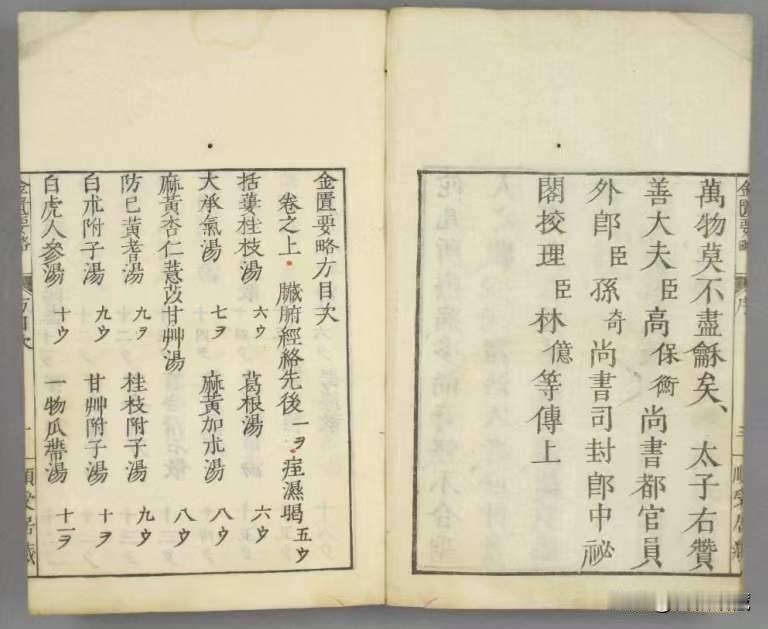 萬物莫不盡龢矣、太子右贊
善大夫臣高保衡尚書都官員
外郎臣孫奇尚書司封郎中祕
閣挍理臣林億等傳上
金匱要略方目次
卷之上・臟腑經絡先後一ヲ・痓濕暍五ウ
括蔞桂枝湯 六ウ 葛根湯 六ウ
大承氣湯 七ヲ 麻黃加朮湯 八ウ
麻黃杏仁薏苡甘艸湯 八ウ
防已黃耆湯 九ヲ 桂枝附子湯 九ウ
白朮附子湯 九ウ 甘艸附子湯 十ヲ
白虎人參湯 十ウ 一物瓜蒂湯 十一ヲ
金匱要略
方目次
一